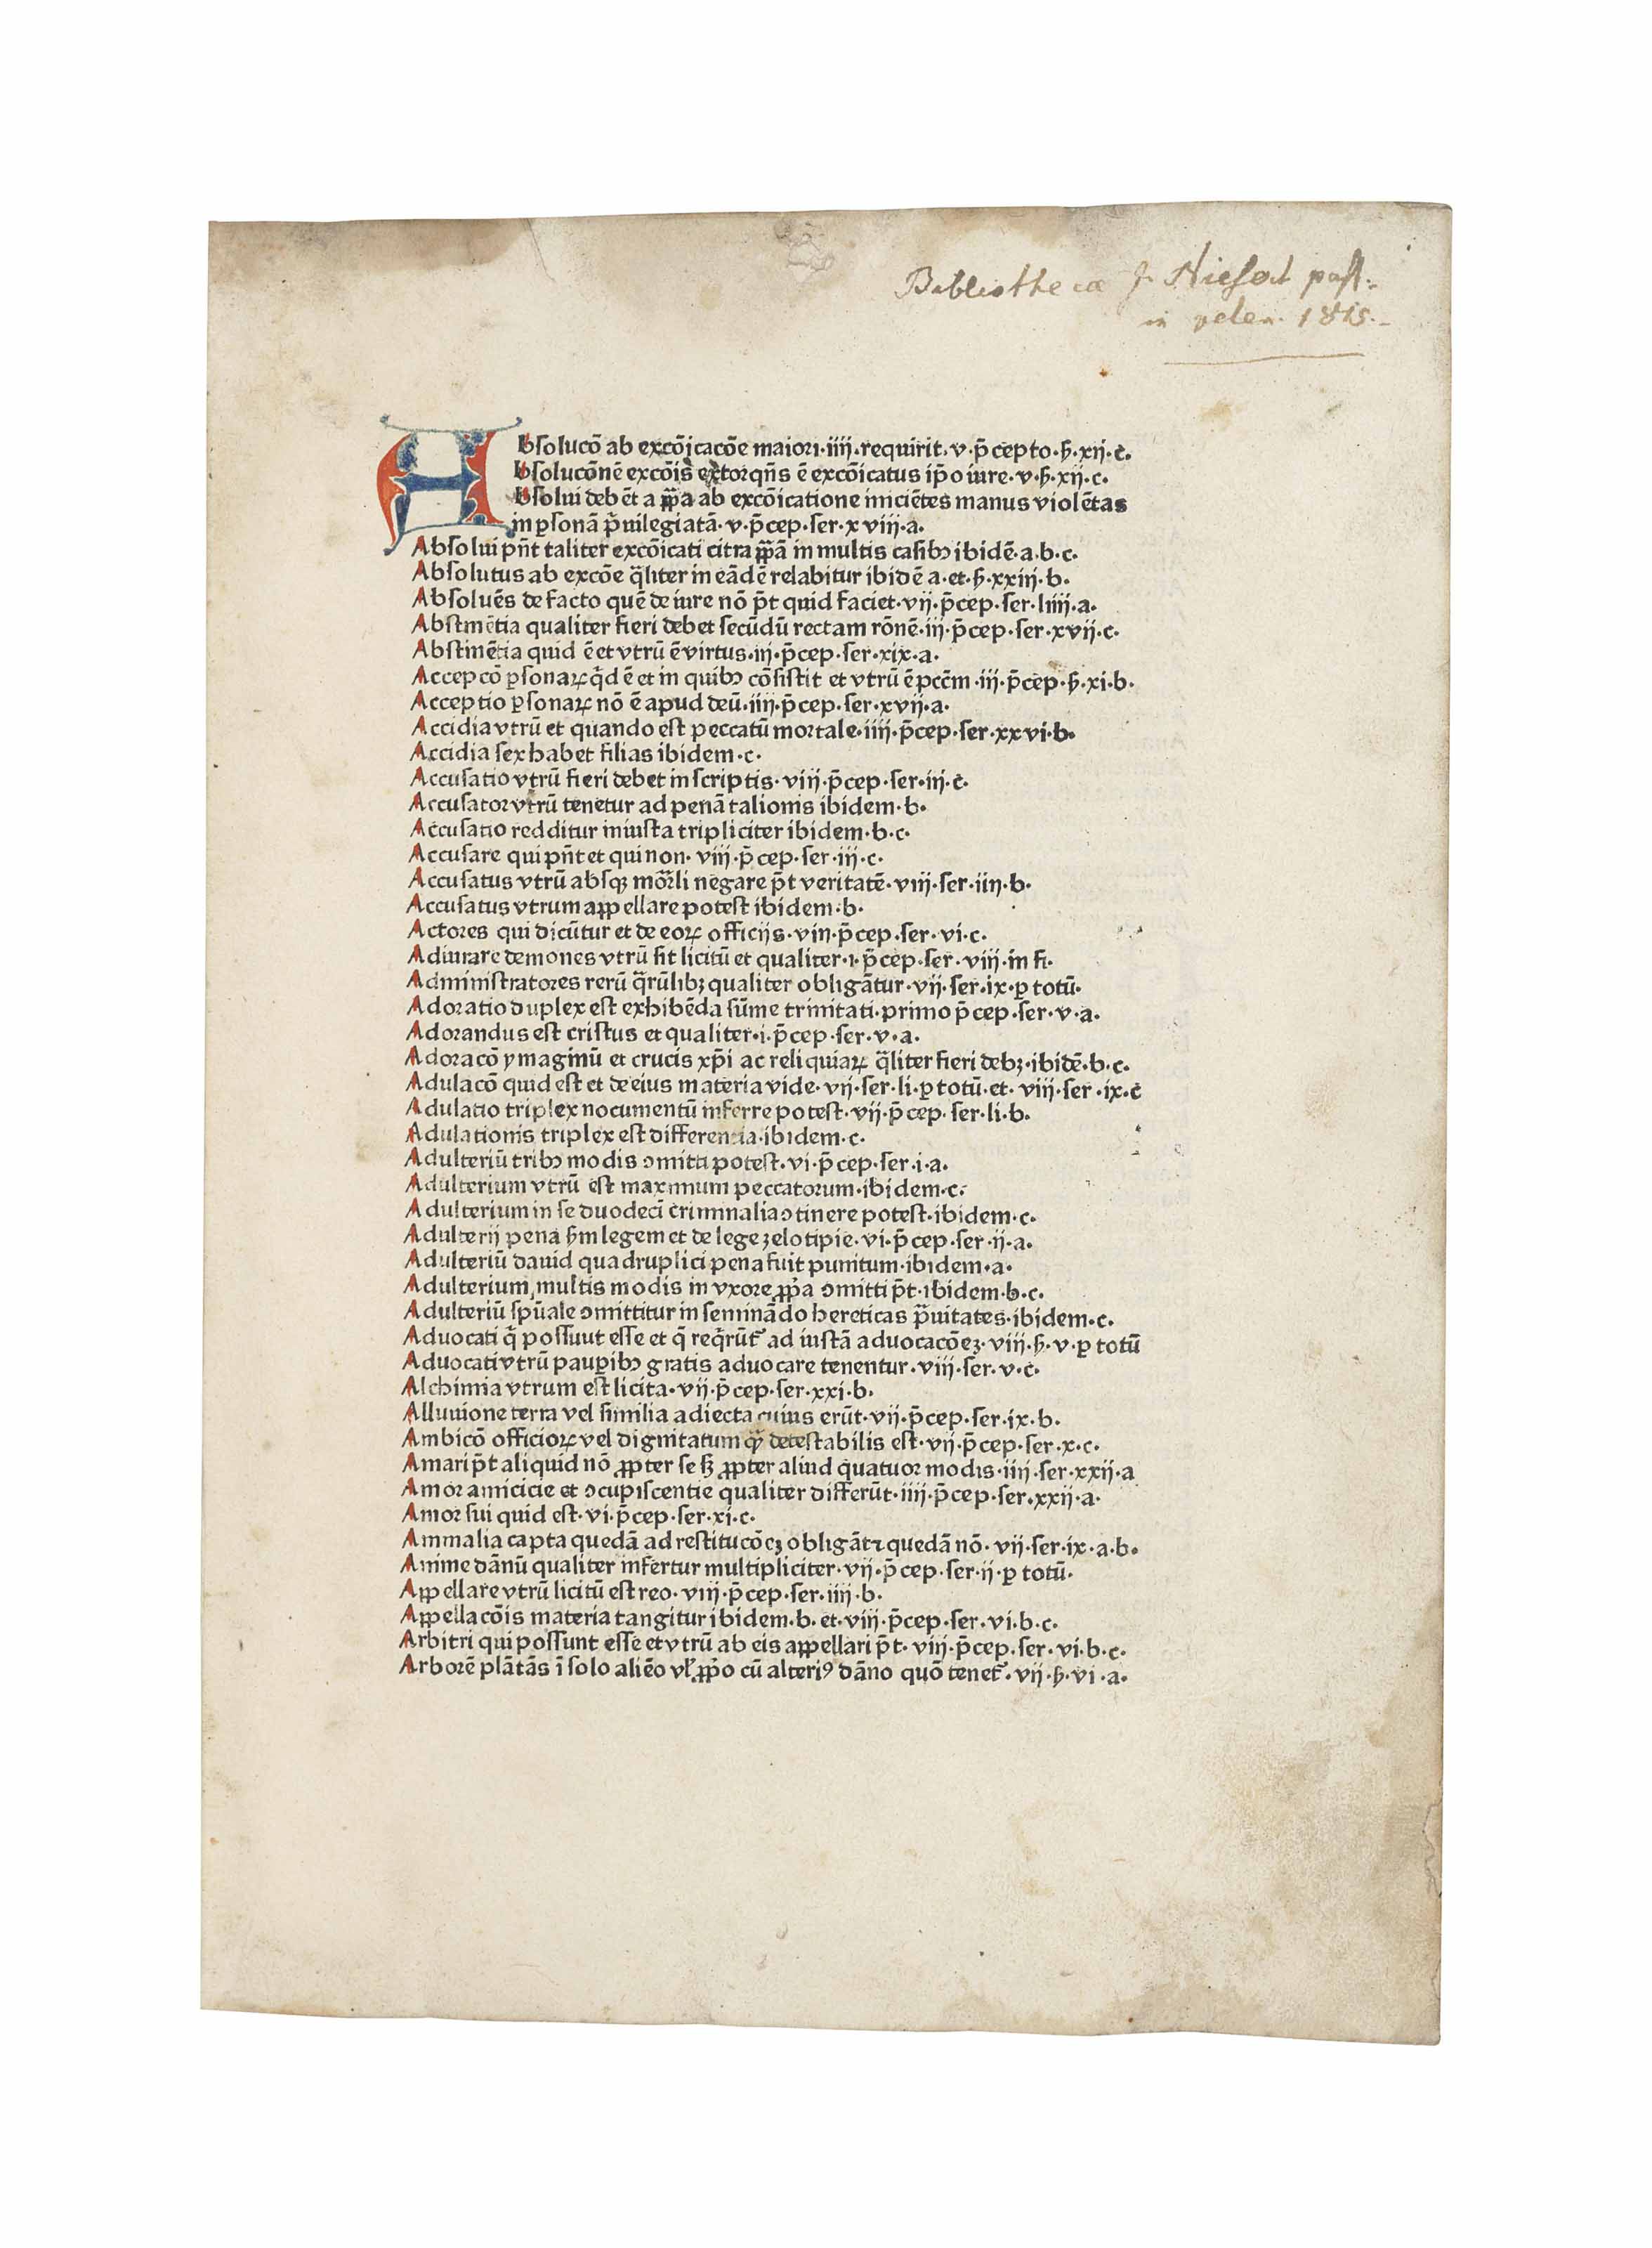 Bibliothecæ J. Niesert past:
in velen. 1815.
Absolucō ab excōicacōe maiori·iiii·requirit·v·p̄cepto·ẜ·xij·c̄·
Absolucōnē excōis extorqn̄s ē excōicatus ip̄o iure·v·ẜ·xij·c·
Absolui debēt a ꝓp̄a ab excōicatione iniciētes manus violētas
in ꝑsonā p̄uilegiatā·v·p̄cep·ser·xviij·a·
Absolui pn̄t taliter excōicati citra ꝓp̄ā in multis casibꝰ ibidē·a·b·c·
Absolutus ab excōe q̄liter in eādē relabitur ibidē a·et·ẜ·xxiij·b·
Absoluēs de facto quē de iure nō p̄t quid faciet·vij·p̄cep·ser·liiij·a·
Abstinētia qualiter fieri debet secūdū rectam rōnē·iij·p̄cep·ser·xvij·c·
Abstinētia quid ē et vtrū ē virtus·iij·p̄cep·ser·xix·a·
Accepcō ꝑsonaꝝ q̄d ē et in quibꝰ cōsistit et vtrū ē pccm̄·iij·p̄cep·ẜ·xi·b·
Acceptio ꝑsonaꝝ nō ē apud deū·iiij·p̄cep·ser·xvij·a·
Accidia vtrū et quando est peccatū mortale·iiij·p̄cep·ser·xxvi·b·
Accidia sex habet filias ibidem·c·
Accusatio vtrū fieri debet in scriptis·viij·p̄cep·ser·iij·c̄·
Accusator vtrū tenetur ad penā talionis ibidem·b·
Accusatio redditur iniusta tripliciter ibidem·b·c·
Accusare qui pn̄t et qui non·viij·p̄cep·ser·iij·c·
Accusatus vtrū absqꝫ mor̄li negare p̄t veritatē·viij·ser·iiij·b·
Accusatus vtrum appellare potest ibidem·b·
Actores qui dicūtur et de eoꝝ officijs·viij·p̄cep·ser·vi·c·
Adiurare demones vtrū sit licitū et qualiter·i·p̄cep·ser·viij·in fi·
Administratores rerū q̄rūlibꝫ qualiter obligātur·vij·ser·ix·ꝑ totū·
Adoratio duplex est exhibēda sūme trinitati·primo p̄cep·ser·v·a·
Adorandus est cristus et qualiter·i·p̄cep·ser·v·a·
Adoracō ymaginū et crucis xp̄i ac reliquiaꝝ q̄liter fieri debꝫ·ibidē·b·c·
Adulacō quid est et de eius materia vide·vij·ser·li·ꝑ totū·et·viij·ser·ix·c̄
Adulatio triplex nocumentū inferre potest·vij·p̄cep·ser·li·b·
Adulationis triplex est differentia·ibidem·c·
Adulteriū tribꝰ modis ꝯmitti potest·vi·p̄cep·ser·i·a·
Adulterium vtrū est maximum peccatorum·ibidem·c·
Adulterium in se duodecī criminalia ꝯtinere potest·ibidem·c·
Adulterij pena ẜm legem et de lege zelotipie·vi·p̄cep·ser·ij·a·
Adulteriū dauid quadruplici pena fuit punitum·ibidem·a·
Adulterium multis modis in vxore ꝓp̄a ꝯmitti p̄t·ibidem·b·c·
Adulteriū sp̄uale ꝯmittitur in seminādo hereticas p̄uitates·ibidem·c·
Aduocati q̄ possuut esse et q̄ req̄rūt̄ ad iustā aduocacōeꝫ·viij·ẜ·v·ꝑ totū
Aduocati vtrū pauꝑibꝰ gratis aduocare tenentur·viij·ser·v·c̄·
Alchimia vtrum est licita·vij·p̄cep·ser·xxi·b·
Alluuione terra vel similia adiecta cuius erūt·vij·p̄cep·ser·ix·b·
Ambicō officioꝝ vel dignitatum qꝫ̄ detestabilis est·vij·p̄cep·ser·x·c·
Amari p̄t aliquid nō ꝓpter se sꝫ ꝓpter aliud quatuor modis·iiij·ser·xxij·a
Amor amicicie et ꝯcupiscentie qualiter differūt·iiij·p̄cep·ser·xxij·a·
Amor sui quid est·vi·p̄cep·ser·xi·c·
Animalia capta quedā ad restitucōeꝫ obligāt⁊ quedā nō·vij·ser·ix·a·b·
Anime dānū qualiter infertur multipliciter·vij·p̄cep·ser·ij·ꝑ totū·
Appellare vtrū licitū est reo·viij·p̄cep·ser·iiij·b·
Appellacōis materia tangitur ibidem·b·et·viij·p̄cep·ser·vi·b·c·
Arbitri qui possunt esse et vtrū ab eis appellari p̄t·viij·p̄cep·ser·vi·b·c·
Arborē plātās ī solo aliēo vl̓ ꝓp̄o cū alteriꝰ dāno quō tenet̄·vij·ẜ·vi·a·